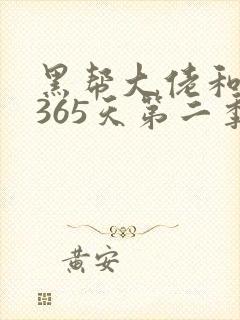 黑帮大佬和
365天第二季
黄安